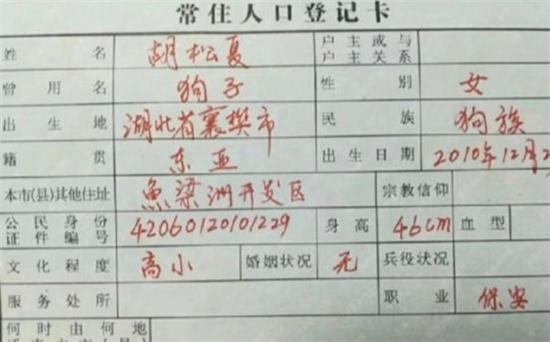 常住人口登记卡
姓名 胡松夏 户主或与户主关系
曾用名 狗子 性别 女
出生地 湖北省襄樊市 民族 狗族
籍贯 东亚 出生日期 2010年12月2
本市(县)其他住址 鱼梁洲开发区 宗教信仰
公民身份证件编号 42060120101229 身高 46cm 血型
文化程度 高小 婚姻状况 无 兵役状况
服务处所 职业 保安
何时由何地